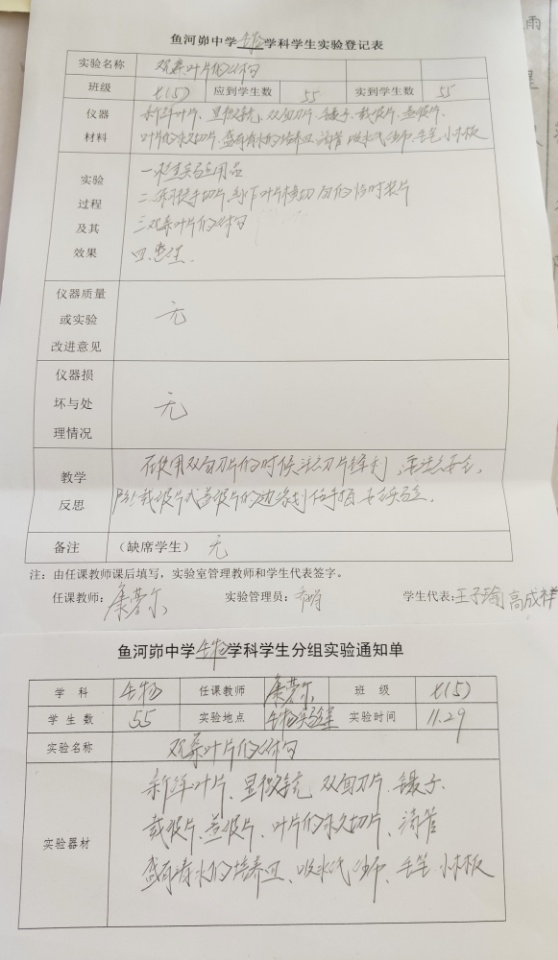 鱼河峁中学生物学科学生实验登记表
实验名称 观察叶片的结构
班级 七(5) 应到学生数 55 实到学生数 55
仪器 新鲜叶片、显微镜、双面刀片、镊子、载玻片、盖玻片、
材料 叶片的永久切片、盛有清水的培养皿、滴管、吸水纸、纱布、毛笔、小木板
实验 一、检查实验用品
过程 二、练习徒手切片,制作叶片横切面的临时装片
及其 三、观察叶片的结构
效果 四、整理.
仪器质量
或实验 无
改进意见
仪器损
坏与处 无
理情况
教学 在使用双面刀片的时候注意刀片锋利,注意安全,
反思 防止载玻片或盖玻片的边缘划伤手指
备注 (缺席学生) 无
注:由任课教师课后填写,实验室管理教师和学生代表签字。
任课教师: 实验管理员: 学生代表:王子瑜 高成祥
鱼河峁中学生物学科学生分组实验通知单
学 科 生物 任课教师 班 级 七(5)
学 生 数 55 实验地点 生物实验室 实验时间 11.29
实验名称 观察叶片的结构
新鲜叶片、显微镜、双面刀片、镊子、
实验器材 载玻片、盖玻片、叶片的永久切片、滴管
盛有清水的培养皿、吸水纸、纱布、毛笔、小木板